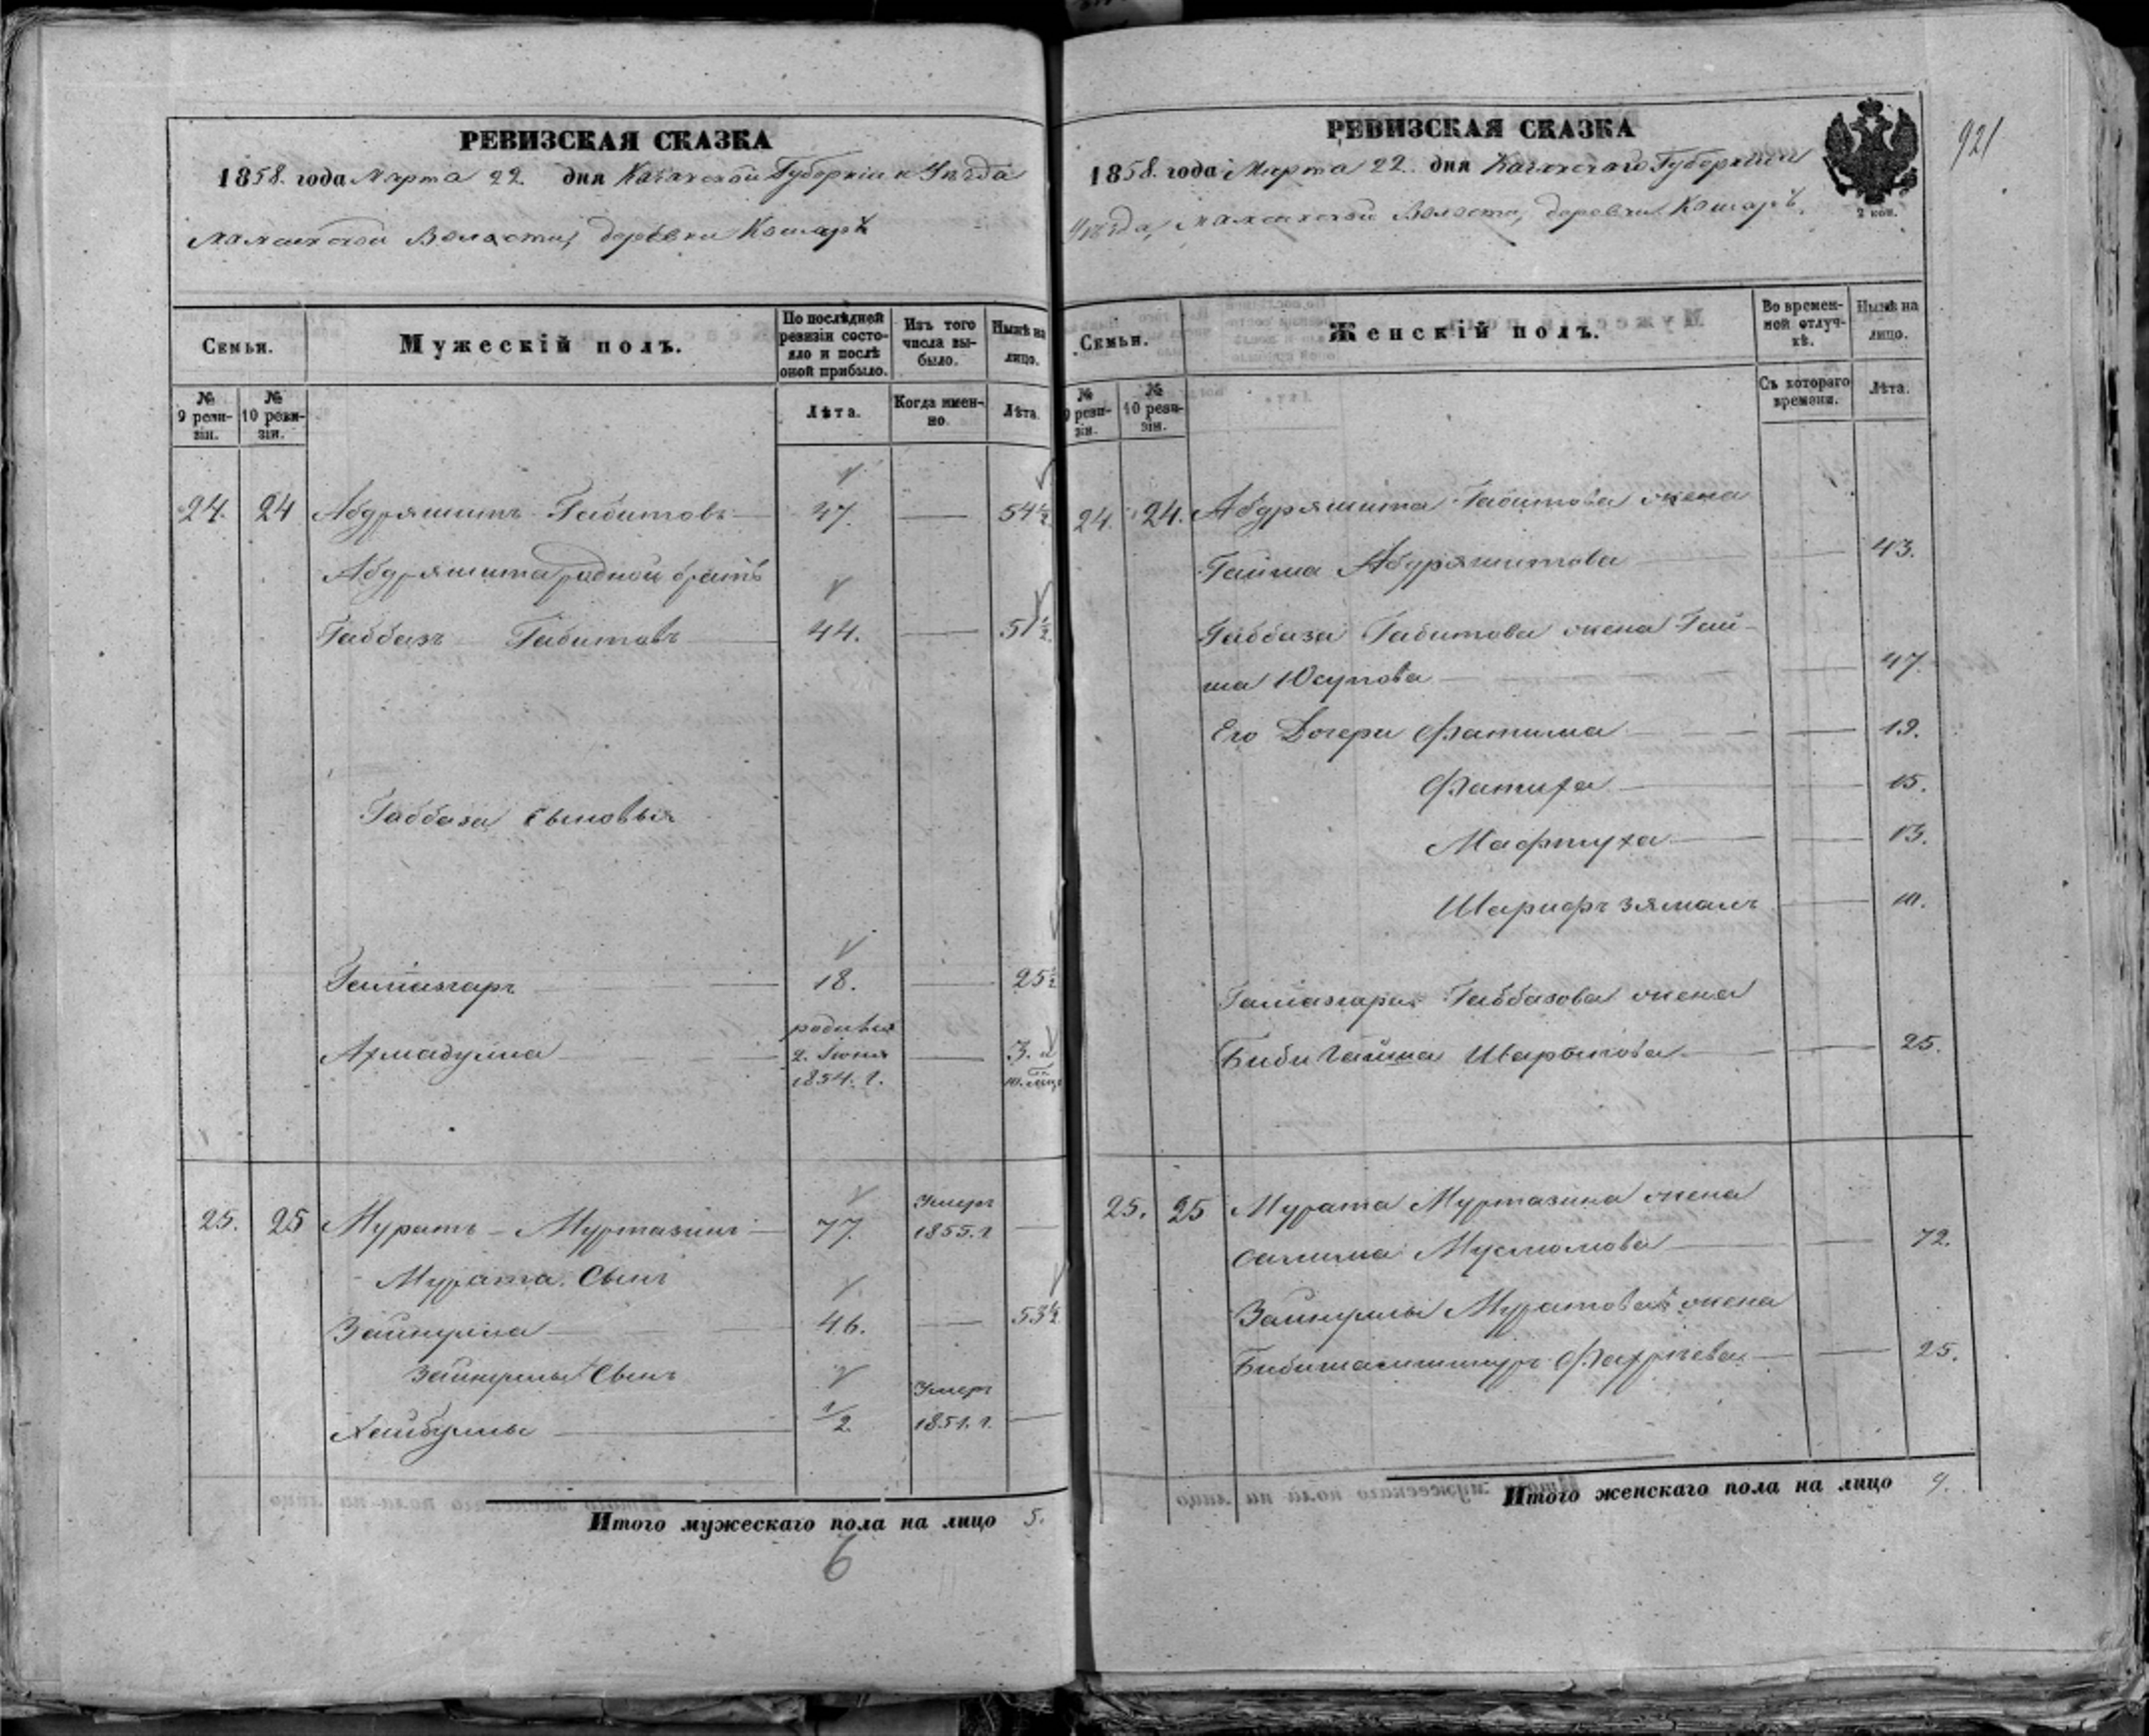 РЕВИЗСКАЯ СКАЗКА
1858. года Марта 22 дня Казанской Губерніи и Уѣзда
Мамсинской Волости, деревни Кошаръ
Семьи.
Мужескій полъ.
По послѣдней ревизіи состояло и послѣ оной прибыло.
Изъ того числа выбыло.
Нынѣ на лицо.
№ 9 ревизіи.
№ 10 ревизіи.
Лѣта.
Когда именно.
Лѣта.
24. 24 Абдряшитъ Габитовъ 47. 54 ½
Абдряшита родной братъ
Габбазъ Габитовъ 44. 51 ½
Габбаза сыновья
18. 25 ½
родився
Ахмадулла 2. Іюня 3. и
1854. г. 10. мѣц
Умеръ
25. 25 Муратъ - Муртазинъ 77. 1855. г
Мурата сынъ
Зайнулла 46. 53 ½
Зайнуллы сынъ Умеръ
Хайбулла ½ 1851. г.
Итого мужескаго пола на лицо 5.
6
РЕВИЗСКАЯ СКАЗКА
1858. года Марта 22. дня Казанской Губерніи
Уѣзда, Мамсинской Волости, деревни Кошаръ.
2 коп.
921
Семьи.
Женскій полъ.
Во временной отлучкѣ.
Нынѣ на лицо.
№ 9 ревизіи.
№ 10 ревизіи.
Съ котораго времени.
Лѣта.
24. 24. Абдряшита Габитова жена
Гайша Абдряшитова 43.
Габбаза Габитова жена Гай-
ша Юсупова 47.
Его Дочери Фатима 19.
Фатиха 15.
Мафтуха 13.
Шарифъ зямалъ 10.
Габбазова жена
Биби Гайша 25.
25. 25 Мурата Муртазина жена
Салима 72.
Зайнуллы Муратова жена
25.
Итого женскаго пола на лицо 9.